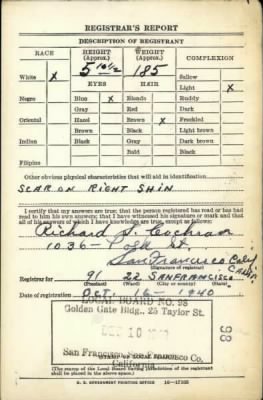 REGISTRAR'S REPORT
DESCRIPTION OF REGISTRANT
RACE HEIGHT (Approx.) WEIGHT (Approx.) COMPLEXION
White X 5 10½ 185 Sallow
EYES HAIR Light X
Negro Blue X Blonde Ruddy
Gray Red Dark
Oriental Hazel Brown X Freckled
Brown Black Light brown
Indian Black Gray Dark brown
Bald Black
Filipino
Other obvious physical characteristics that will aid in identification
SCAR ON RIGHT SHIN
I certify that my answers are true; that the person registered has read or has had read to him his own answers; that I have witnessed his signature or mark and that all of his answers of which I have knowledge are true, except as follows:
Richard Cochran
1036 - Polk St.
San Francisco Calif
(Signature of registrar)
Registrar for 91 22 SANFRANCISCO CALIF
(Precinct) (Ward) (City or county) (State)
Date of registration OCT. 16 - 1940
LOCAL BOARD NO. 98
Golden Gate Bldg., 25 Taylor St.
98
San Francisco, San Francisco Co.
California
(The stamp of the Local Board having jurisdiction of the registrant shall be placed in the above space.)
U. S. GOVERNMENT PRINTING OFFICE 16-17105